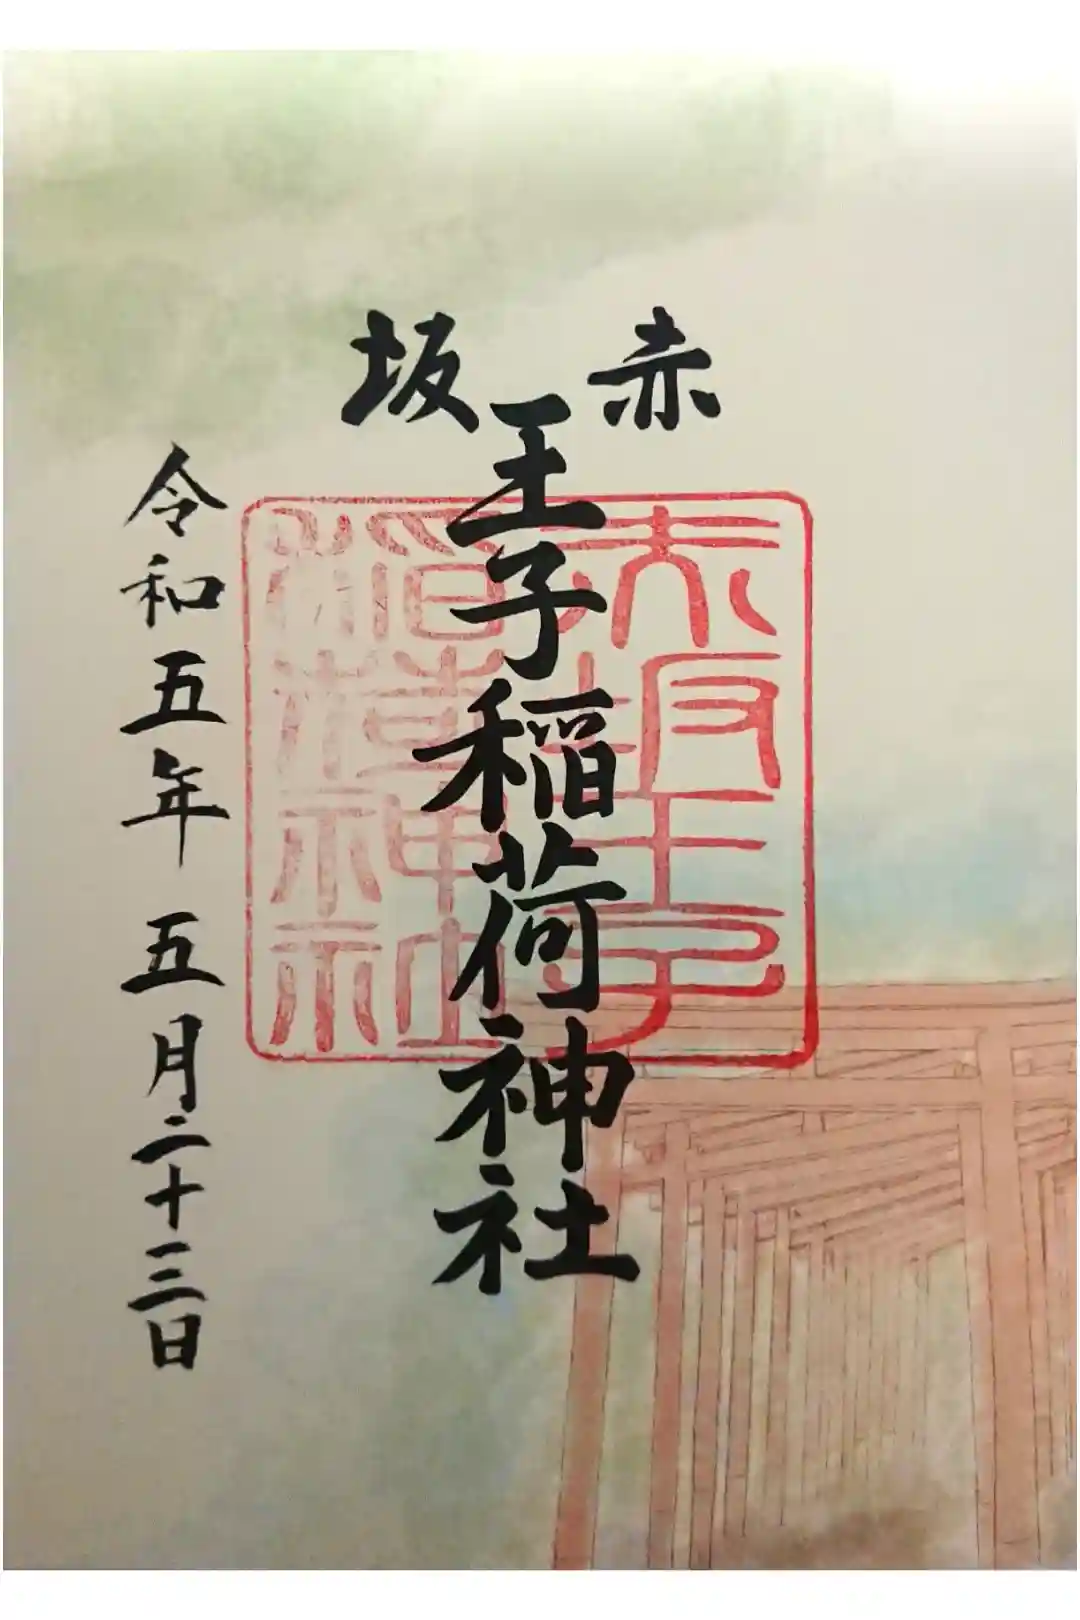 赤坂
王子稲荷神社
令和五年 五月二十三日
赤坂王子
稲荷神社